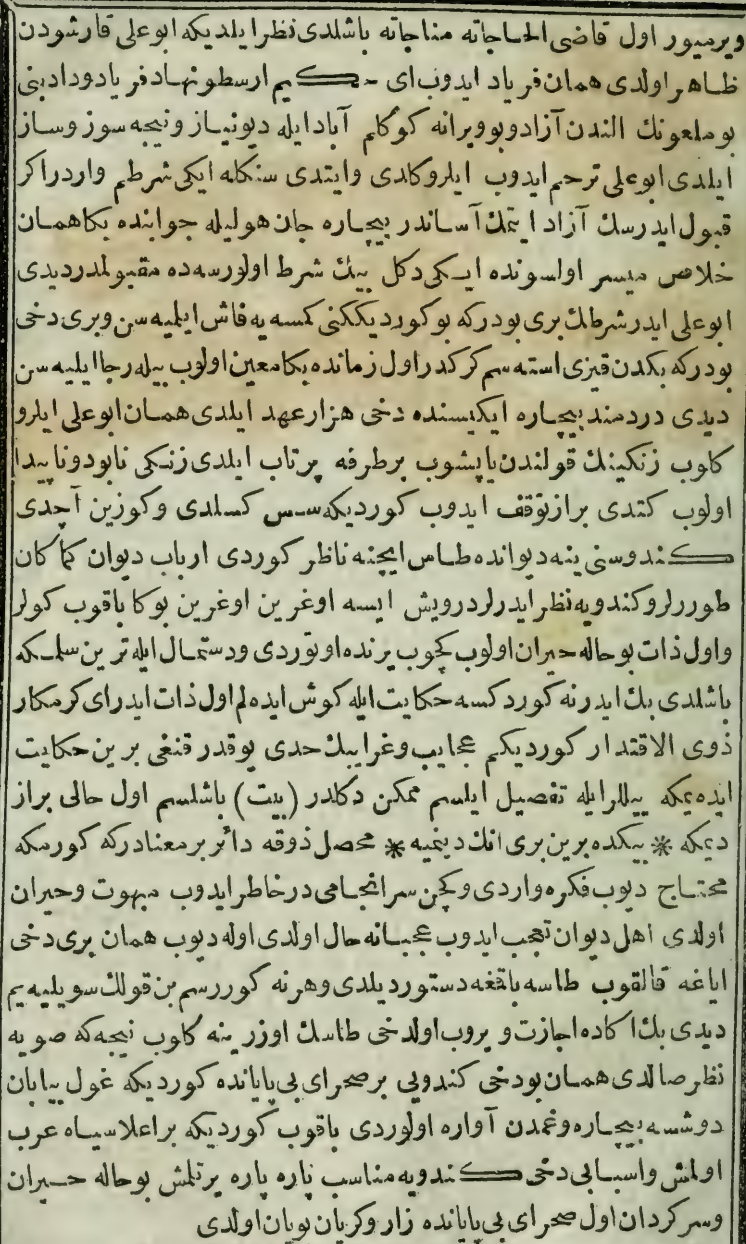 ویرمیور اول قاضی الحاجاته مناجاته باشلدی نظر ایلدیکه ابوعلی قارشودن
ظاهر اولدی همان فریاد ایدوب ای حکیم ارسطو نهاد فریاد و داد بنی
بو ملعونك الندن آزاد و بو ویرانه کوکلم آباد ایله دیو نیاز و نیجه سوز وساز
ایلدی ابوعلی ترحم ایدوب ایلرو کلدی وایتدی سنکله ایکی شرطم واردر اکر
قبول ایدرسك آزاد ایتمك آساندر بیچاره جان هولیله جوابنده بکا همان
خلاص میسر اولسونده ایکی دکل بیك شرط اولورسه ده مقبولمدر دیدی
ابوعلی ایدر شرطك بری بودرکه بو کوردیککنی کمسه یه فاش ایلیه سن وبری دخی
بودرکه بکدن قیزی استه سم کرکدر اول زمانده بکا معین اولوب بیله رجا ایلیه سن
دیدی دردمند بیچاره ایکیسنده دخی هزار عهد ایلدی همان ابوعلی ایلرو
کلوب زنکینك قولندن یاپیشوب برطرفه پرتاب ایلدی زنکی نابود وناپیدا
اولوب کتدی براز توقف ایدوب کوردیکه سس کسلدی وکوزین آچدی
کندوسنی ینه دیوانده طاس ایچنه ناظر کوردی ارباب دیوان کماکان
طوررلر وکندویه نظر ایدرلر درویش ایسه اوغرین اوغرین بوکا باقوب کولر
واول ذات بو حاله حیران اولوب کچوب یرنده اوتوردی ودستمال ایله ترین سلمکه
باشلدی بك ایدر نه کوردکسه حکایت ایله کوش ایده لم اول ذات ایدر ای کرمکار
ذوی الاقتدار کوردیکم عجایب وغرایبك حدی یوقدر قنغی برین حکایت
ایده یمکه ییللرایله تفصیل ایلسم ممکن دکلدر (بیت) باشلسم اول حالی براز
دیمکه * بیکده برین بری انك دینمیه * محصل ذوقه دائر بر معنادرکه کورمکه
محتاج دیوب فکره واردی وکچن سرانجامی درخاطر ایدوب مبهوت وحیران
اولدی اهل دیوان تعجب ایدوب عجبا نه حال اولدی اوله دیوب همان بری دخی
ایاغه قالقوب طاسه باقمغه دستور دیلدی وهر نه کوررسم بن قولك سویلیه یم
دیدی بك اکاده اجازت ویروب اولدخی طاسك اوزرینه کلوب نیجه که صویه
نظر صالدی همان بودخی کندویی بر صحرای بی پایانده کوردیکه غول بیابان
دوشسه بیچاره وغمدن آواره اولوردی باقوب کوردیکه براعلا سیاه عرب
اولمش واسبابی دخی کندویه مناسب پاره پاره یرتلمش بو حاله حیران
وسرکردان اول صحرای بی پایانده زار وکریان پویان اولدی